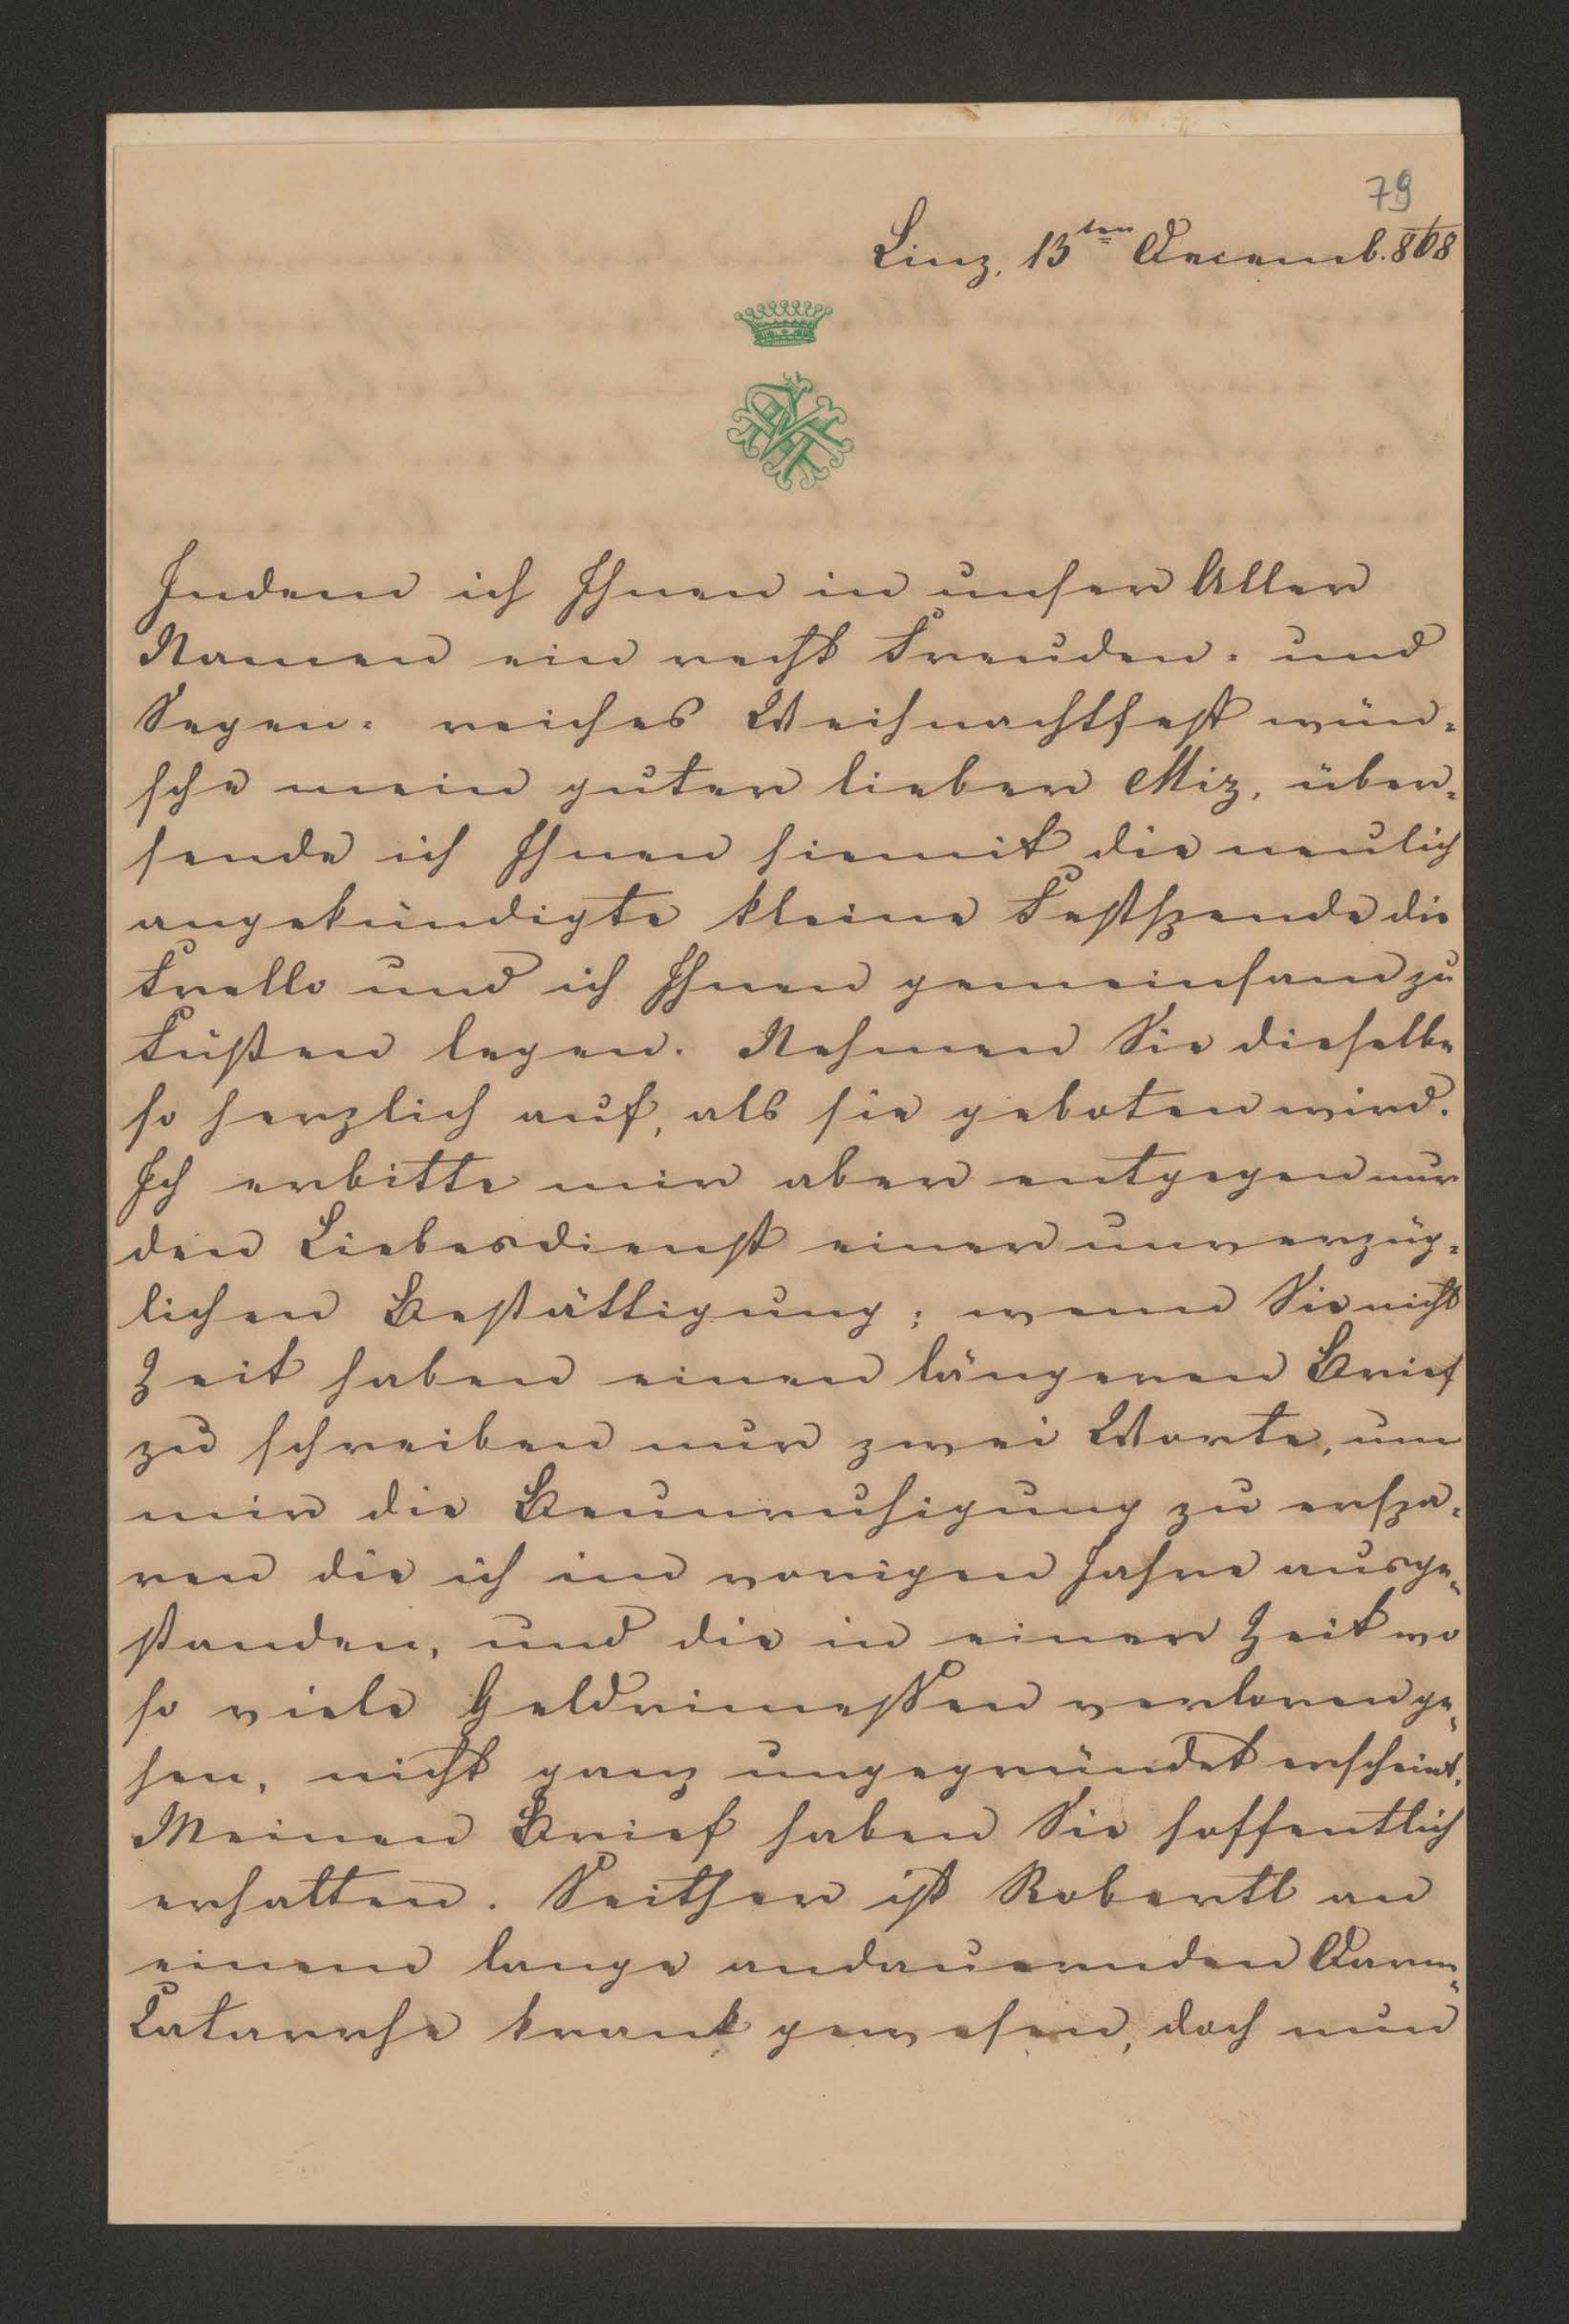 79
Linz, 13ten Decemb. 868
Indem ich Ihnen in unser Aller
Namen ein recht Freuden- und
Segen- reiches Weihnachtsfest wün-
sche mein guter lieber Miz, über-
sende ich Ihnen hiemit die neulich
angekündigte kleine Festspende die
Frello und ich Ihnen gemeinsam zu
Füßen legen. Nehmen Sie dieselbe
so herzlich auf, als sie geboten wird.
Ich erbitte mir aber entgegen nur
den Liebesdienst einer unverzüg-
lichen Bestättigung; wenn Sie nicht
Zeit haben einen längeren Brief
zu schreiben nur zwei Worte, um
mir die Beunruhigung zu erspa-
ren die ich im vorigen Jahre ausge-
standen, und die in einer Zeit wo
so viele Geldrimessen verloren ge-
hen, nicht ganz ungegründet erscheint.
Meinen Brief haben Sie hoffentlich
erhalten. Seither ist Robertl an
einem lange andauernden Darm-
Catarrhe krank gewesen, doch nun